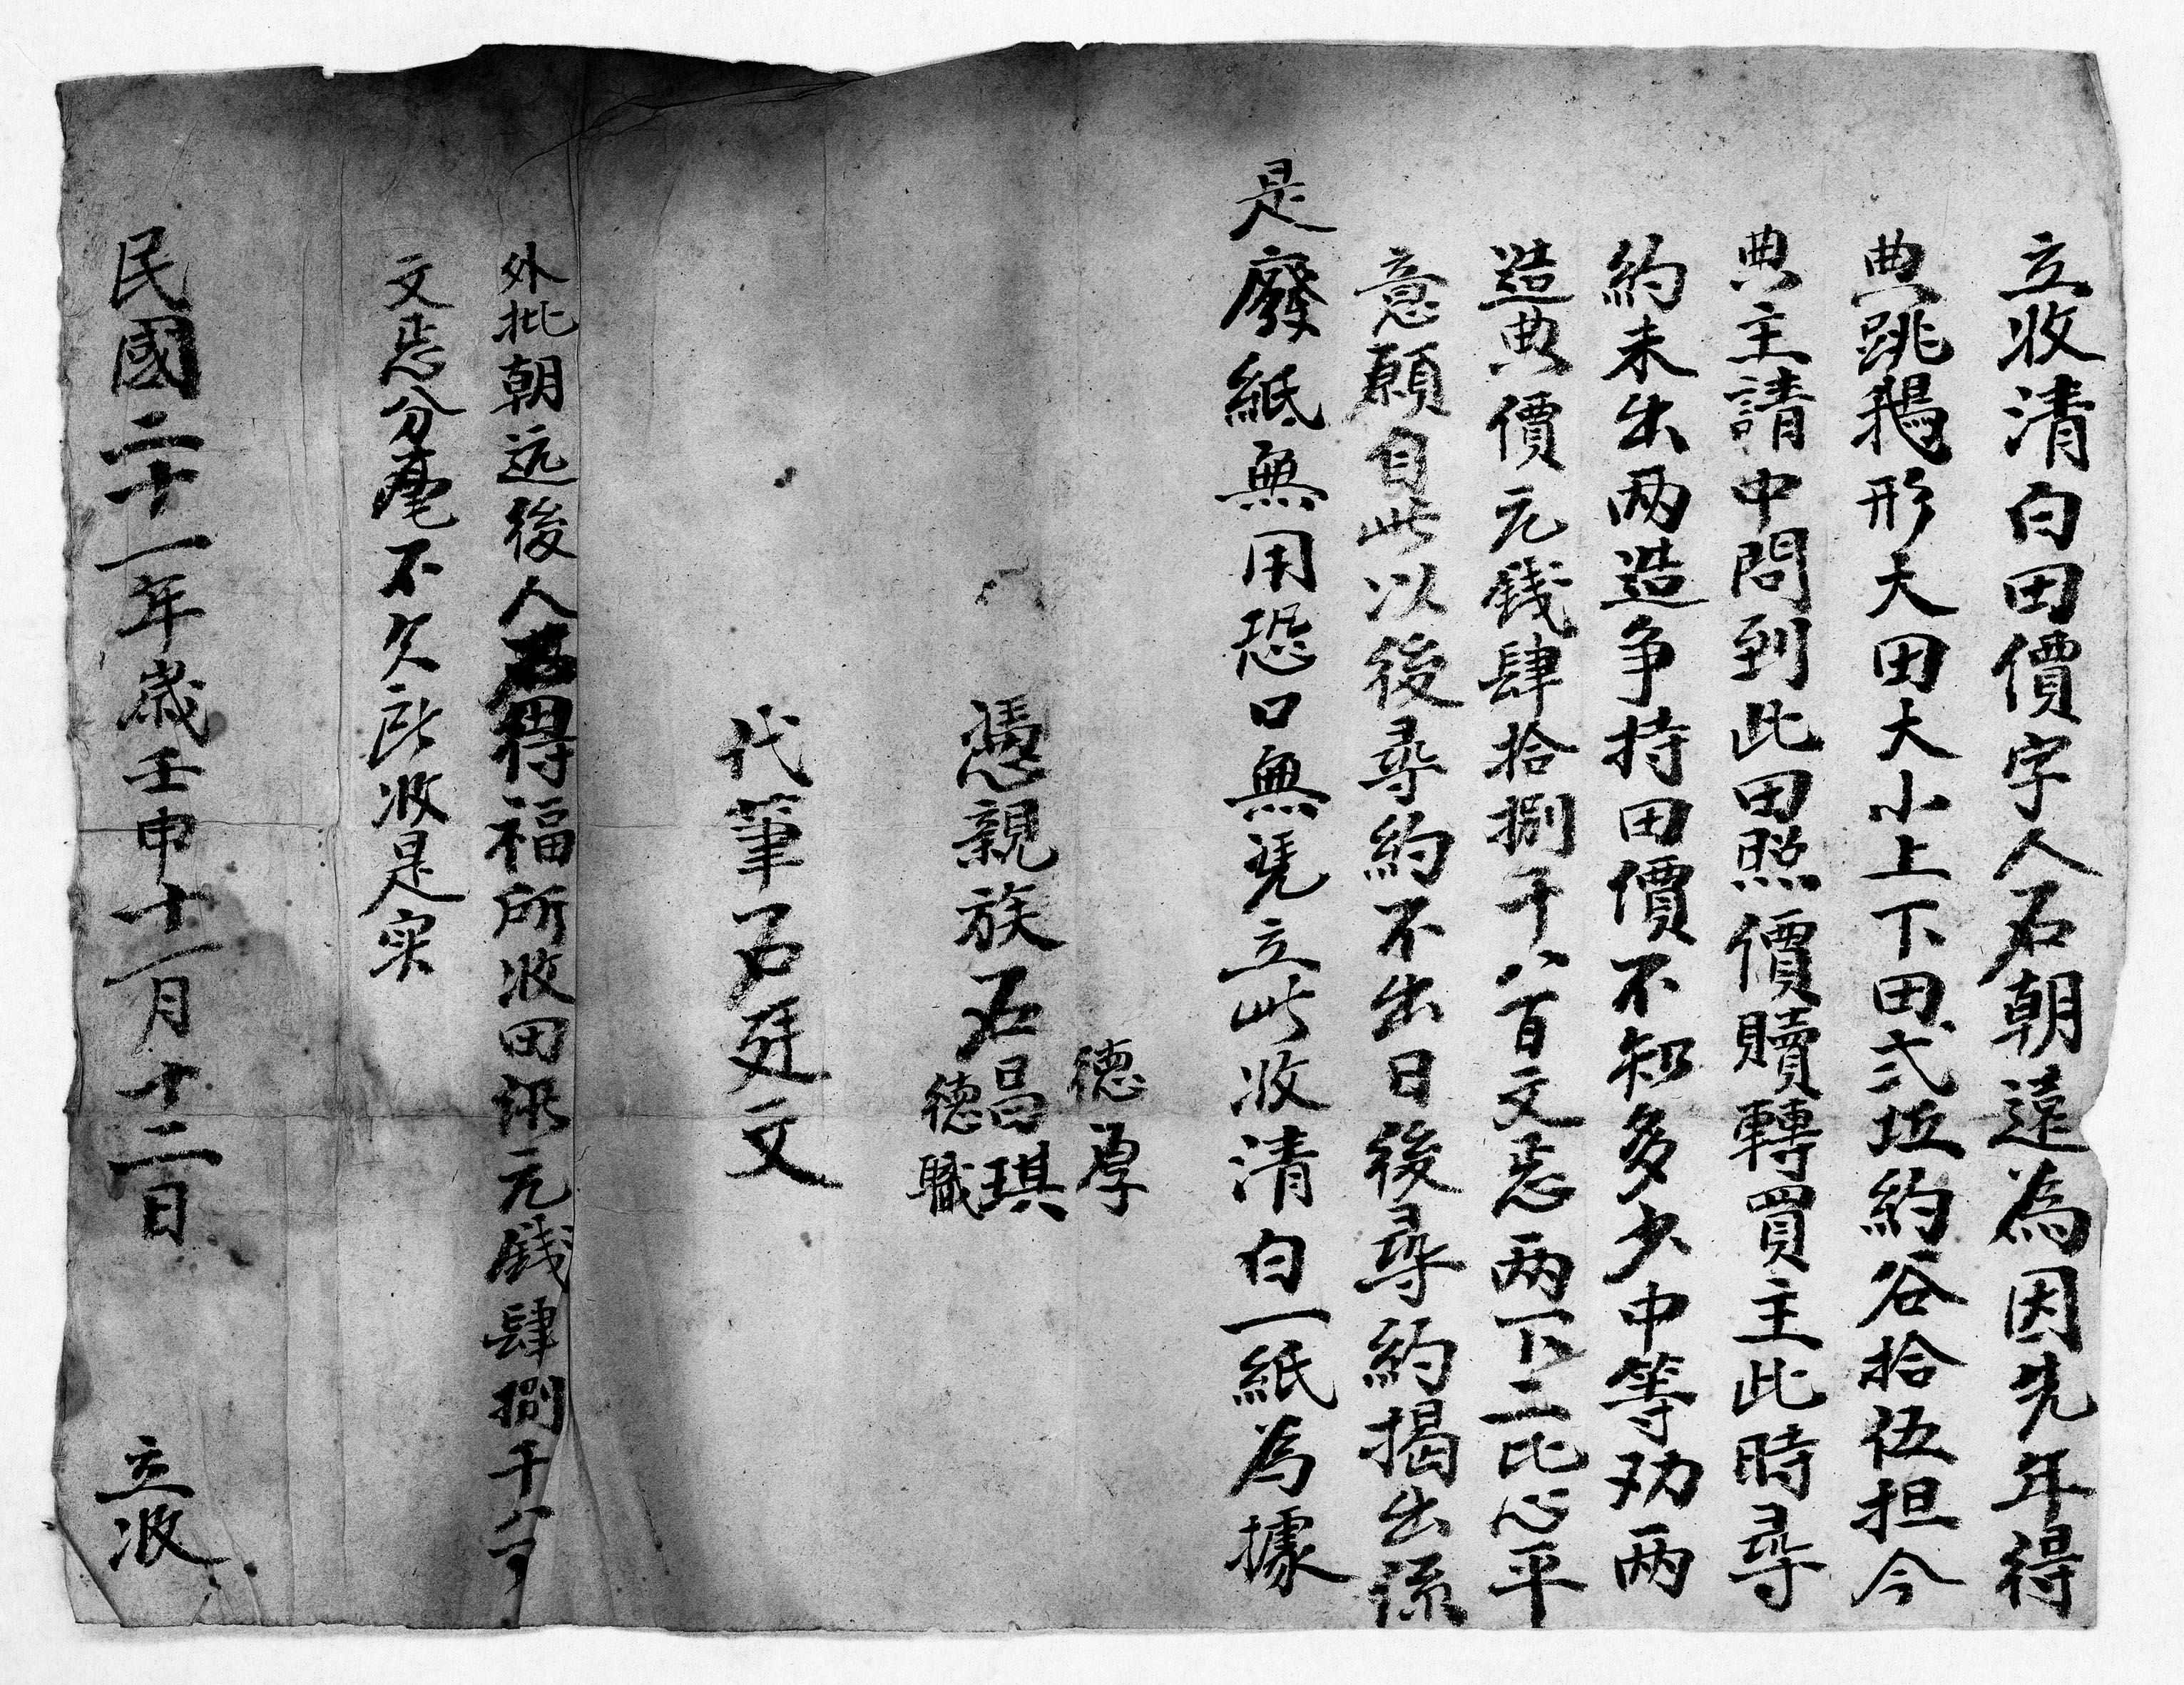 立收清白田價字人石朝遠為因先年得
典跳鵝形大田大小上下田弎坵約谷拾伍担今
典主請中問到此田照價贖轉買主此時尋
約未出两造争持田價不知多少中等劝两
造典價元錢肆拾捌千八百文悉两下二比心平
意願自此以後尋約不出日後尋約揭出係
是廢紙無用恐口無凭立此收清白一紙為據
德厚
憑親族石昌琪
德職
代筆石廷文
外批朝远後人得福所收田價元錢肆捌千八百
文悉分毫不欠所收是实
民國二十一年歲壬申十一月十二日 立收